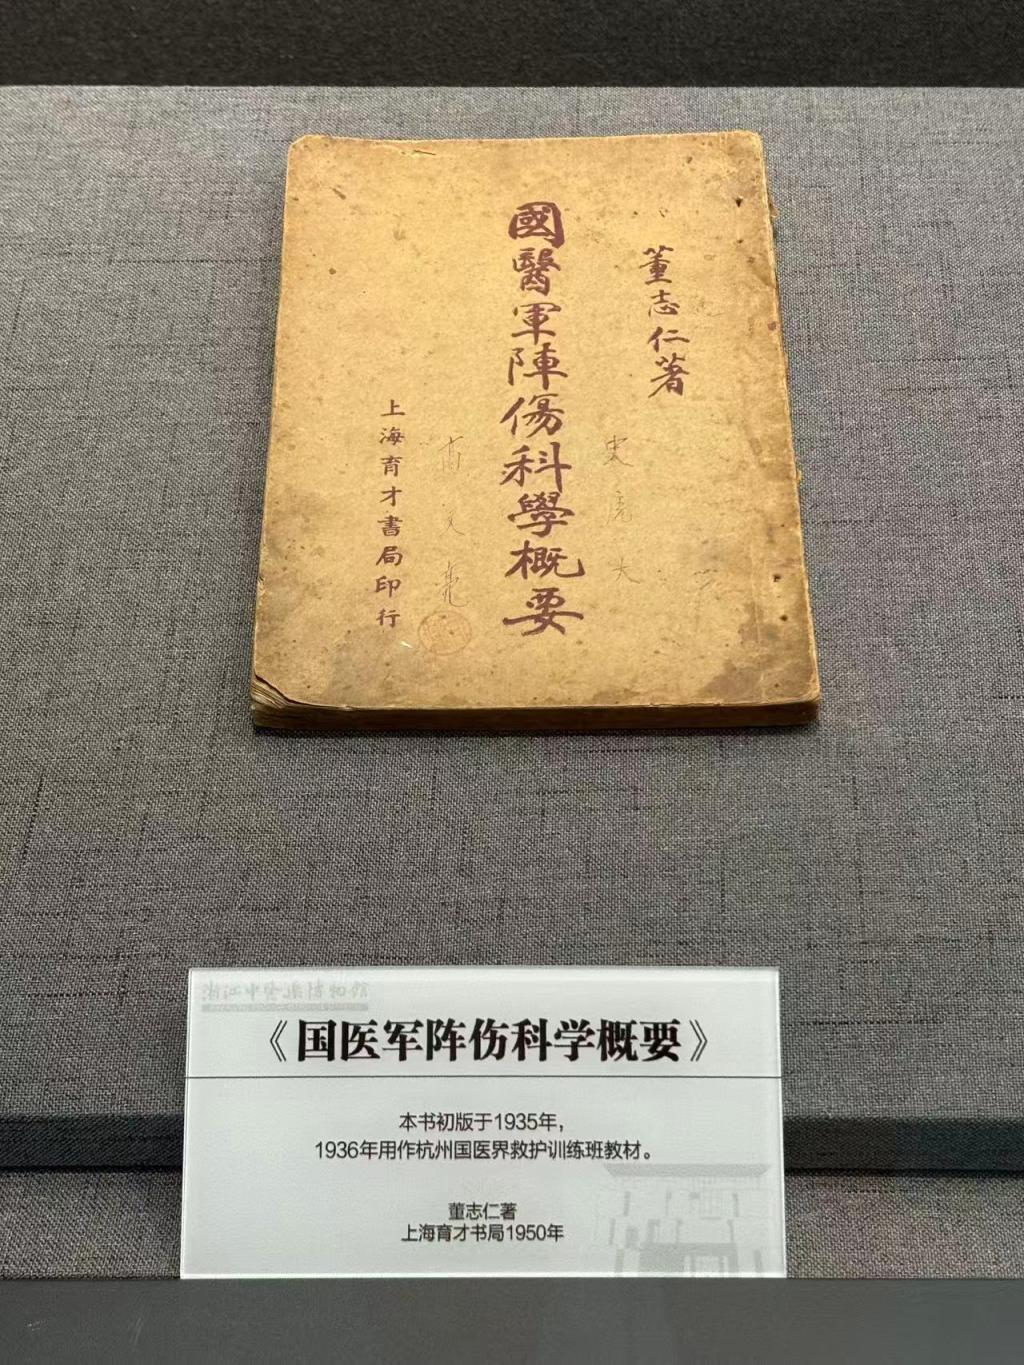 董志仁著
國醫軍陣傷科學概要
上海育才書局印行
浙江中医药博物馆
《国医军阵伤科学概要》
本书初版于1935年，
1936年用作杭州国医界救护训练班教材。
董志仁著
上海育才书局1950年